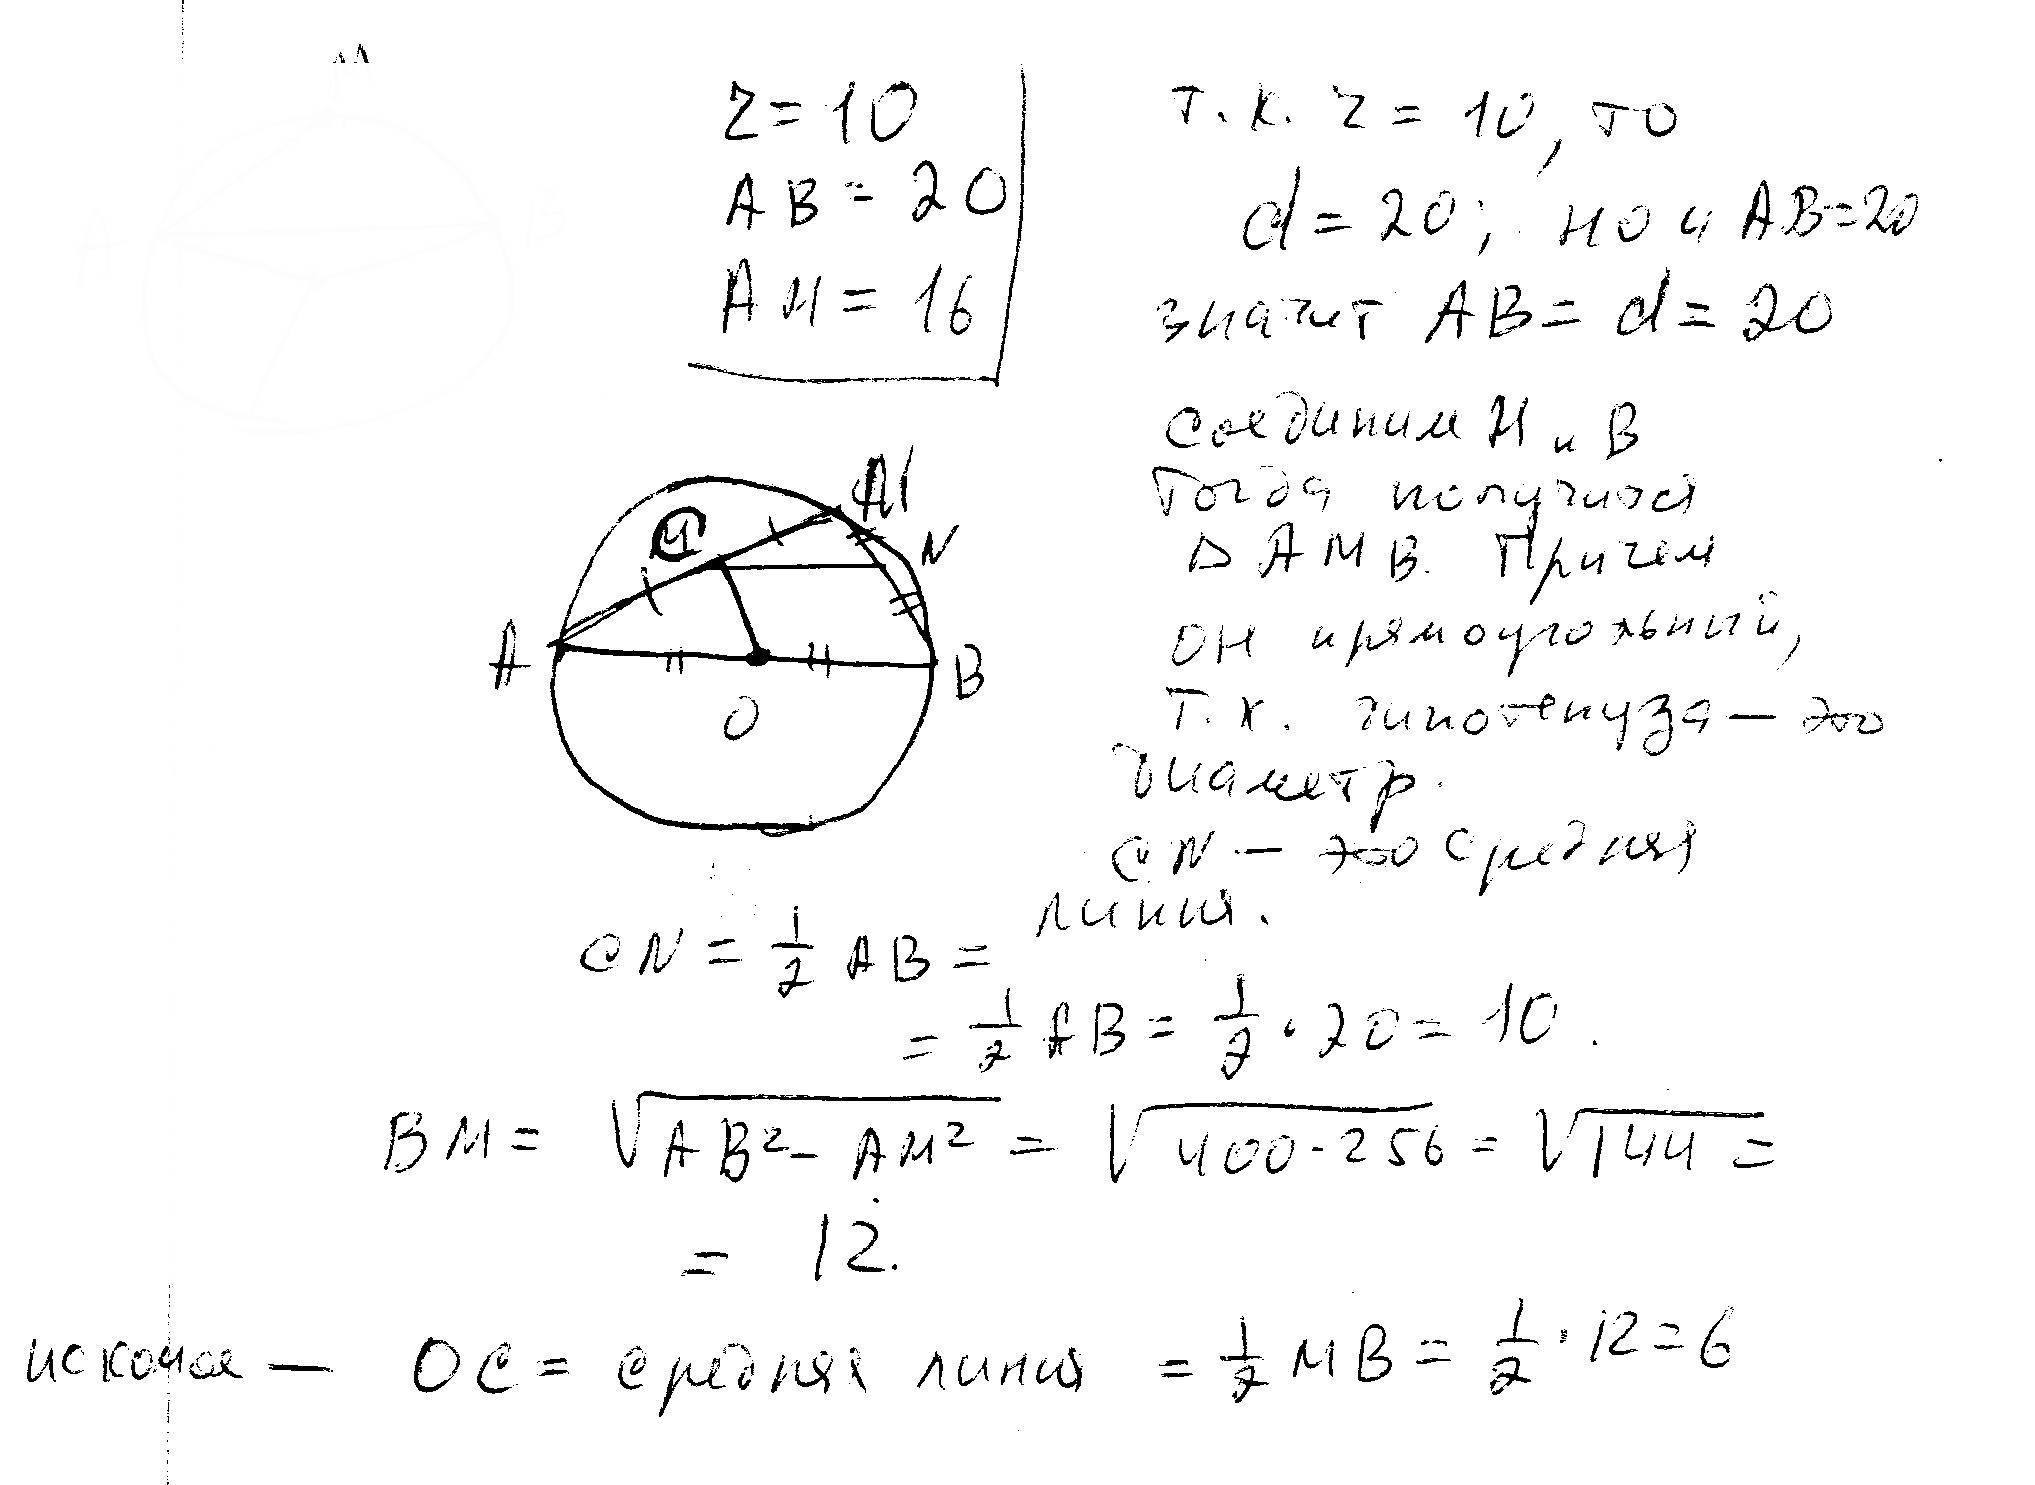 r = 10
AB = 20
AM = 16
т. к. r = 10, то
d = 20; но и AB = 20
значит AB = d = 20
соединим M и B
Тогда получился
Δ AMB. Причем
он прямоугольный,
т. к. гипотенуза — это
диаметр.
CN — это средняя
линия.
M
C
N
A
B
O
CN = 1/2 AB =
= 1/2 AB = 1/2 · 20 = 10.
BM = √(AB² - AM²) = √(400 - 256) = √144 =
= 12.
искомое — OC = средняя линия = 1/2 MB = 1/2 · 12 = 6